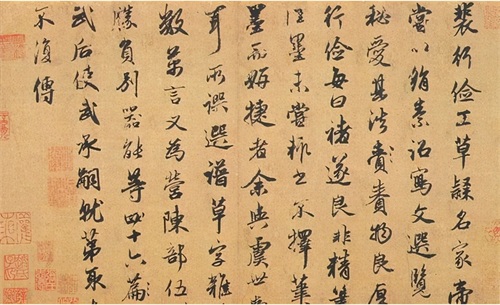 裴行儉工草隸名家帝
嘗以絹素詔寫文選覽
秘愛其法賚賚物良厚
行儉每曰褚遂良非精
佳墨未嘗輒書不擇筆
墨而妍捷者余與虞世
耳所譔選譜草字雜
數萬言又為營陳部伍
勝負別器能等四十六篇
武后使武承嗣就第取
不復傳